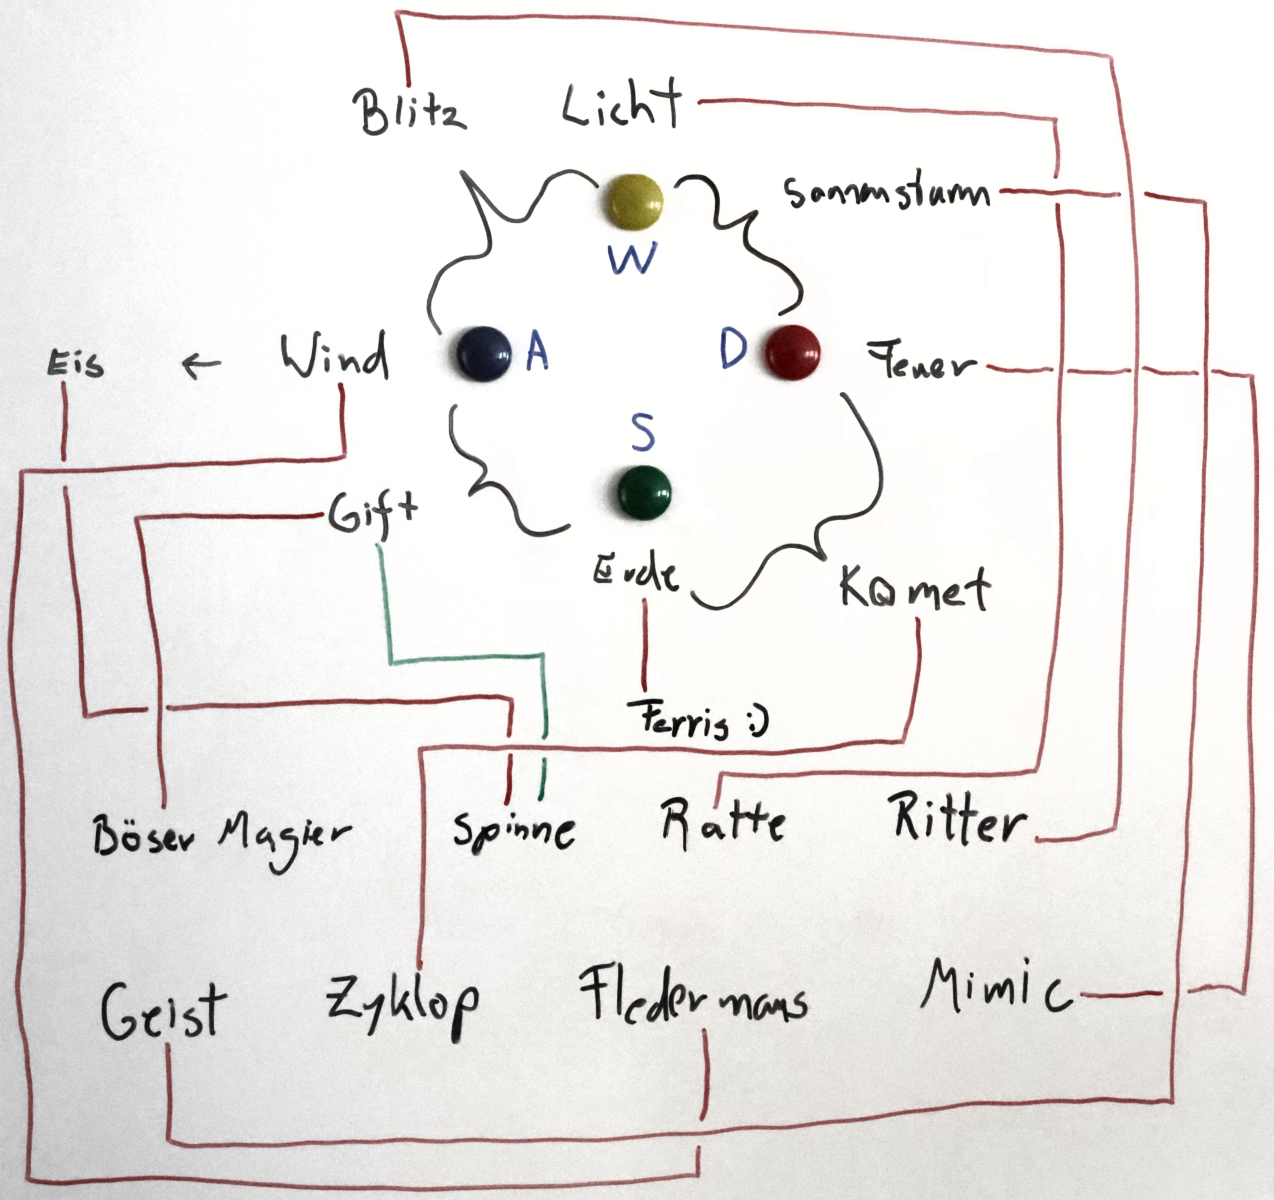 Blitz Licht
Sonnensturm
W
Eis ← Wind A D Feuer
S
Gift
Erde Komet
Ferris :)
Böser Magier Spinne Ratte Ritter
Geist Zyklop Fledermaus Mimic